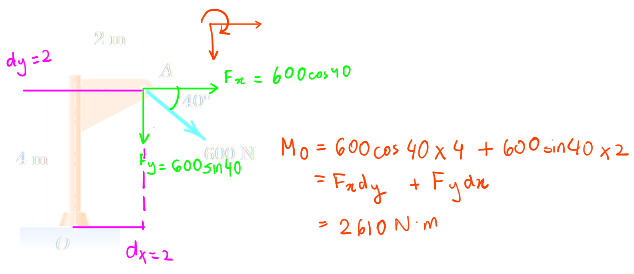 2 m
dy=2
A
Fx = 600cos40
40°
600 N
4 m
Fy=600sin40
O
dx=2
Mo = 600cos 40 x 4 + 600sin40 x2
= Fxdy + Fydx
= 2610 N·m